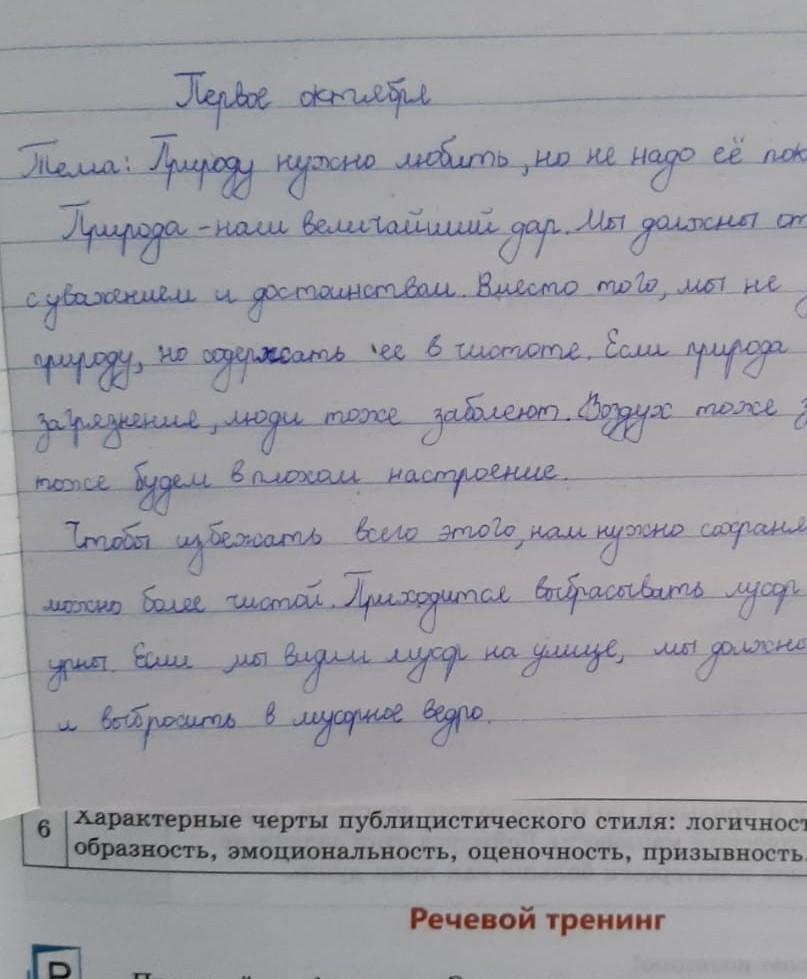 Первое октября
Тема: Природу нужно любить, но не надо её пок
Природа - наш величайший дар. Мы должны от
с уважением и достоинством. Вместо того, мы не
природу, но содержать ее в чистоте. Если природа
загрязнение, люди тоже заболеют. Воздух тоже з
тоже будем в плохом настроение.
Чтобы избежать всего этого, нам нужно сохраня
можно более чистой. Приходится выбрасывать мусор
урны. Если мы видим мусор на улице, мы должно
и выбросить в мусорное ведро.
6 Характерные черты публицистического стиля: логичност
образность, эмоциональность, оценочность, призывность.
Речевой тренинг
Р